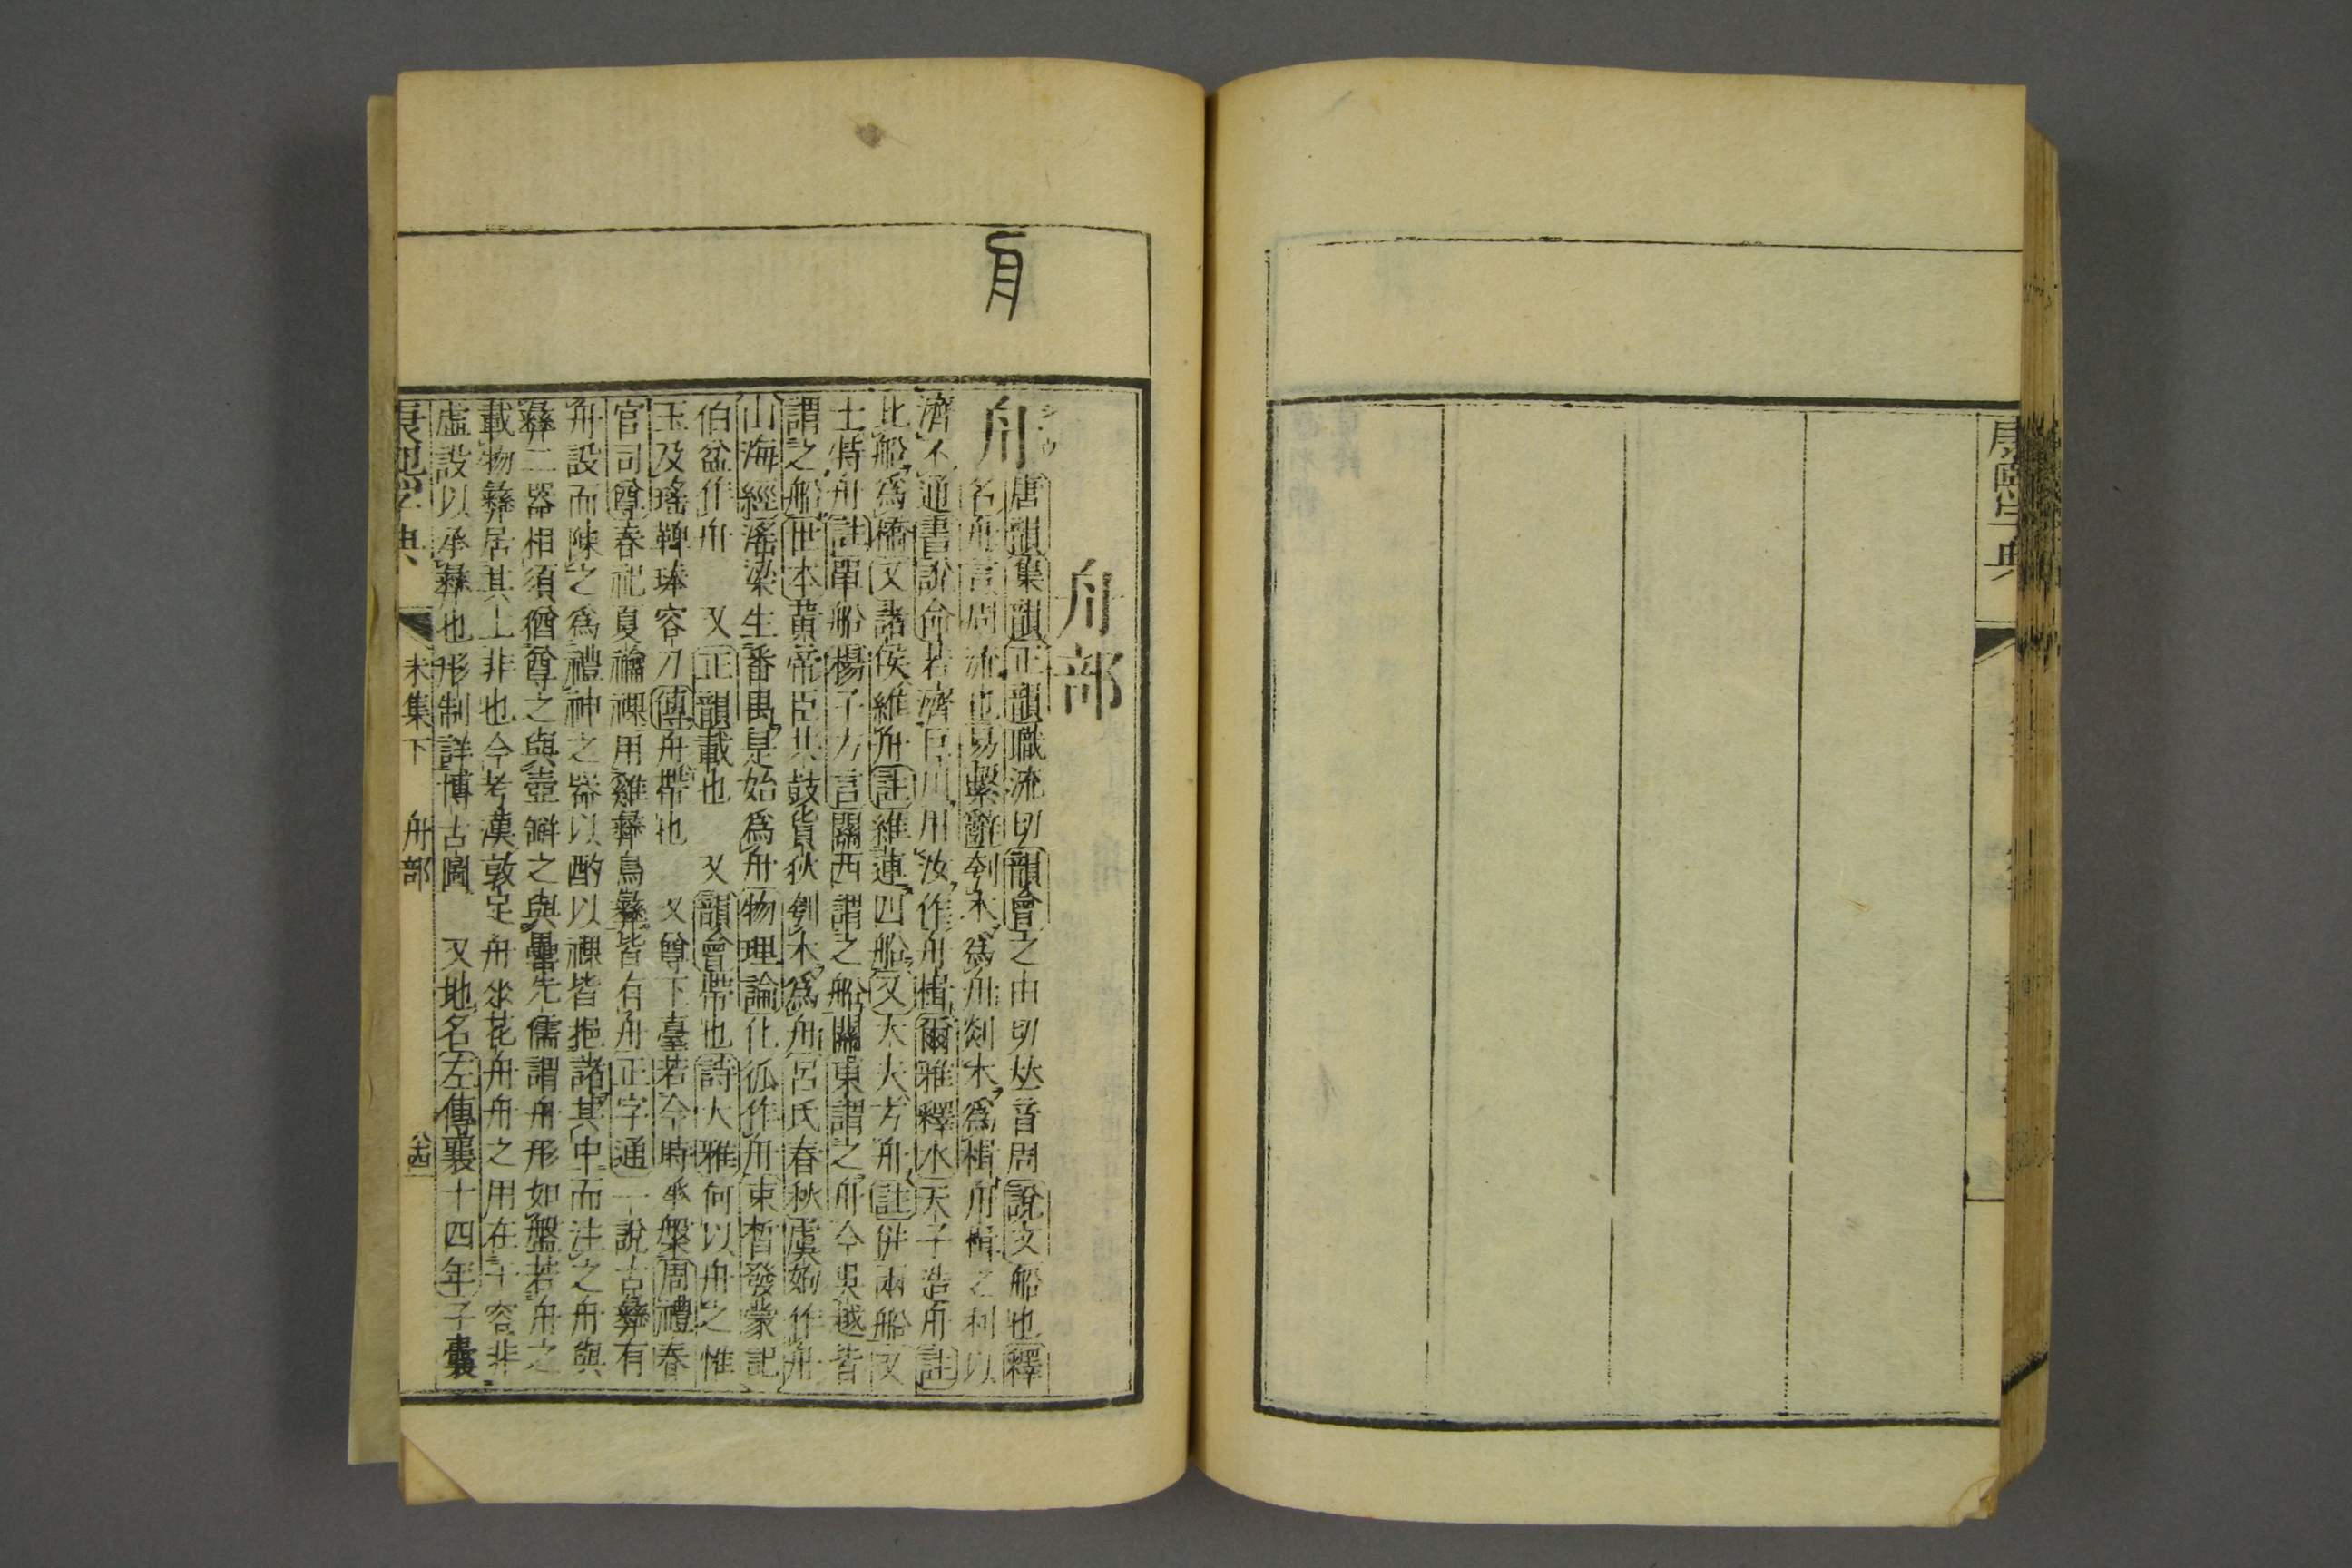 康熙字典
舟部
シウ
舟
唐韻集韻正韻職流切韻會之由切𠀤音周說文船也釋
名舟言周流也易繫辭刳木爲舟剡木爲楫舟楫之利以
濟不通書說命若濟巨川用汝作舟楫爾雅釋水天子造舟註
比船爲橋又諸侯維舟註維連四船又大夫方舟註倂兩船又
士特舟註單船楊子方言關西謂之船關東謂之舟今吳越皆
謂之船世本黃帝臣共鼓貨狄刳木爲舟呂氏春秋虞姁作舟
山海經滛梁生番禺是始爲舟物理論化狐作舟束晳發蒙記
伯益作舟 又正韻載也 又韻會帶也詩大雅何以舟之惟
玉及瑤鞞琫容刀傳舟帶也 又尊下臺若今時承槃周禮春
官司尊春祀夏禴祼用雞彝鳥彝皆有舟正字通一說古彝有
舟設而陳之爲禮神之器以酌以祼皆挹諸其中而注之舟與
彝二器相須猶尊之與壺缾之與罍先儒謂舟形如盤若舟之
載物彝居其上非也今考漢敦足舟坐花舟舟之用在于容非
虛設以承彝也形制詳博古圖 又地名左傳襄十四年子囊
康熙字典 未集下 舟部 八四